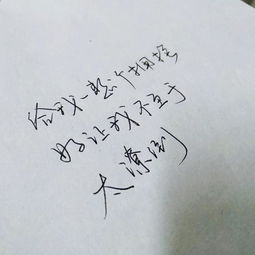 给我一整个拥抱
好让我不至于
太潦倒